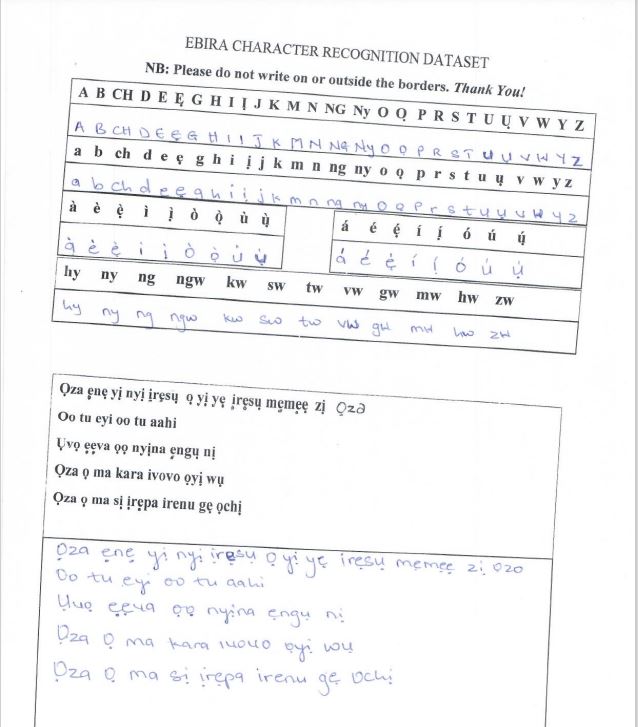 EBIRA CHARACTER RECOGNITION DATASET
NB: Please do not write on or outside the borders. Thank You!
A B CH D E Ẹ G H I Ị J K M N NG Ny O Ọ P R S T U Ụ V W Y Z
A B CH D E Ẹ G H I Ị J K M N NG Ny O Ọ P R S T U Ụ V W Y Z
a b ch d e ẹ g h i ị j k m n ng ny o ọ p r s t u ụ v w y z
a b ch d e ẹ g h i ị j k m n ng ny o ọ p r s t u ụ v w y z
à è ẹ̀ ì ị̀ ò ọ̀ ù ụ̀
á é ẹ́ í ị́ ó ú ụ́
à è ẹ̀ ì ị̀ ò ọ̀ ù ụ̀
á é ẹ́ í ị́ ó ú ụ́
hy ny ng ngw kw sw tw vw gw mw hw zw
hy ny ng ngw kw sw tw vw gw mw hw zw
Ọza ẹnẹ yị nyị ịrẹsụ ọ yị yẹ ịrẹsụ mẹmẹẹ zị Ọza
Oo tu eyi oo tu aahi
Ụvọ ẹẹva ọọ nyịna ẹngụ nị
Ọza ọ ma kara ivovo ọyị wụ
Ọza ọ ma sị ịrẹpa irenu gẹ ọchị
Ọza ẹnẹ yị nyị ịrẹsụ ọ yị yẹ ịrẹsụ mẹmẹẹ zị ọzo
Oo tu eyi oo tu aahi
Ụvọ ẹẹva ọọ nyina ẹngụ nị
Ọza Ọ ma kara ivovo ọyị wụ
Ọza Ọ ma sị ịrẹpa irenu gẹ ọchị